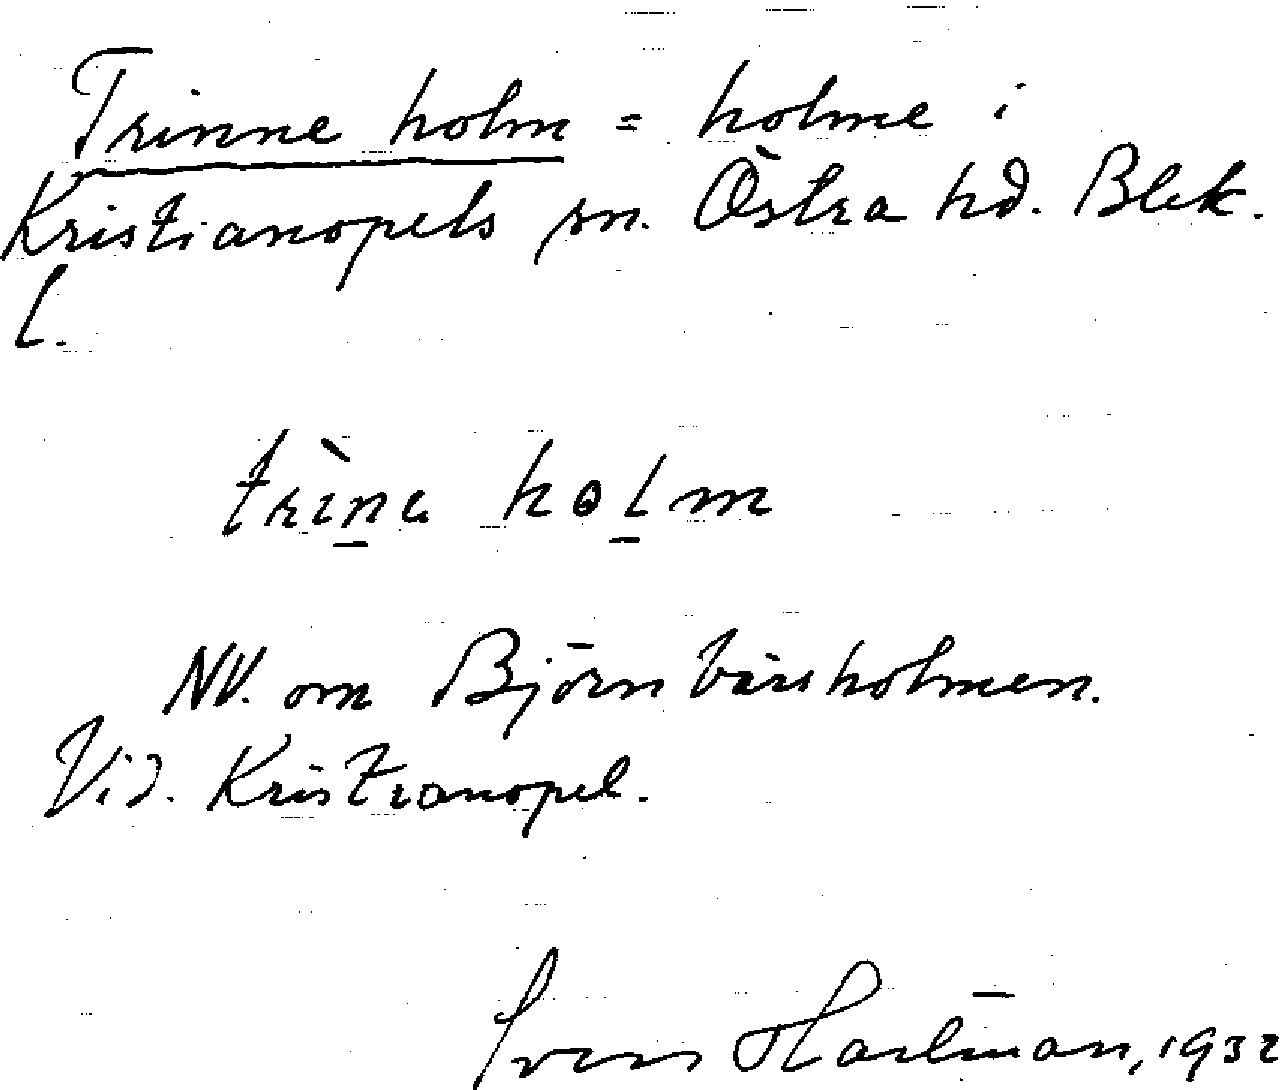 Trinne holm = holme i
Kristianopels sn. Östra hd. Blek.
l.
trìna holm
NV. om Björn bärsholmen.
Vid. Kristianopel.
Sven Hartman, 1932